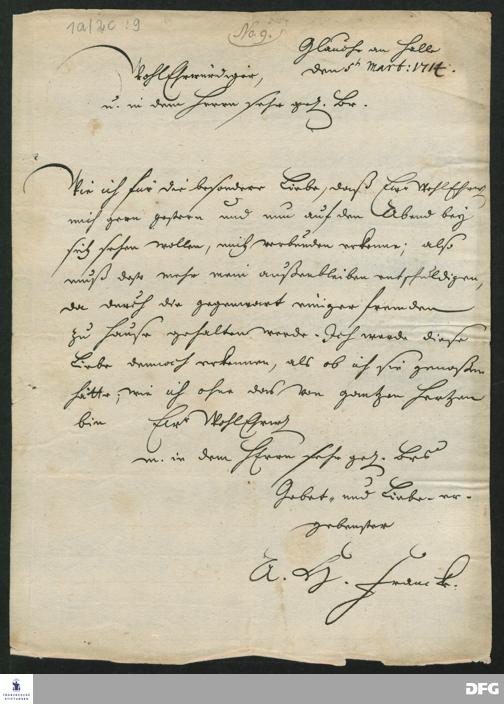 1a/2c : 9
No. 9.
Glaucha an Halle
den 5t Mart: 1714.
WohlEhrwürdiger,
u. in dem Herrn sehr gel. Br.
Wie ich für die besondere Liebe, daß Ew. WohlEhrw.
mich gern gestern und nun auf den Abend bey
sich sehen wollen, mich verbunden erkenne; also
muß desto mehr mein außenbleiben entschuldigen,
da durch die gegenwart einiger fremden
zu Hause gehalten werde. Ich werde diese
Liebe dennoch erkennen, als ob ich sie genoßen
hätte; wie ich ohne das von gantzen Hertzen
bin Ew. WohlEhrw.
u. in dem HErrn sehr gel. Brs
Gebet- und Liebe- er-
gebenster
A. H. Franck.
FRANCKESCHE
STIFTUNGEN
DFG